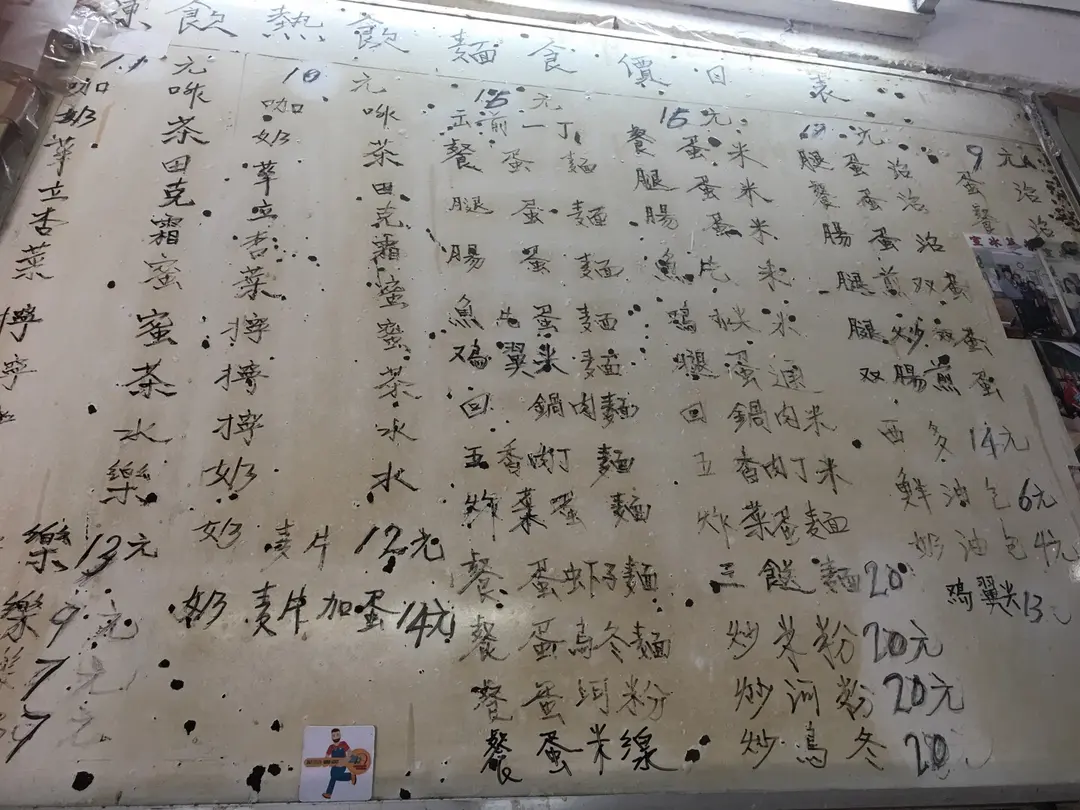 凍飲熱飲麵食價目表
11元
咖啡
奶茶
華田
立克
杏霜
菜蜜
檸蜜
檸茶
水
樂
樂13元
樂9元
7元
7元
10元
咖啡
奶茶
華田
立克
杏霜
菜蜜
檸蜜
檸茶
檸水
奶水
奶麦片12元
奶麦片加蛋14元
15元
出前一丁
餐蛋麵
腿蛋麵
腸蛋麵
魚片蛋麵
鸡翼米麵
回鍋肉麵
五香肉丁麵
炸菜蛋麵
餐蛋虾子麵
餐蛋烏冬麵
餐蛋河粉
餐蛋米線
15元
餐蛋米
腿蛋米
腸蛋米
魚片米
鸡米
腿蛋通
回鍋肉米
五香肉丁米
炸菜蛋麵
三餸麵20
炒米粉20元
炒河粉20元
炒烏冬20
元
腿蛋治
餐蛋治
腸蛋治
腿煎双蛋
腿炒双蛋
双腸煎蛋
西多14元
鮮油包6元
奶油包4元
鸡翼尖13元
9元
蛋治
餐治